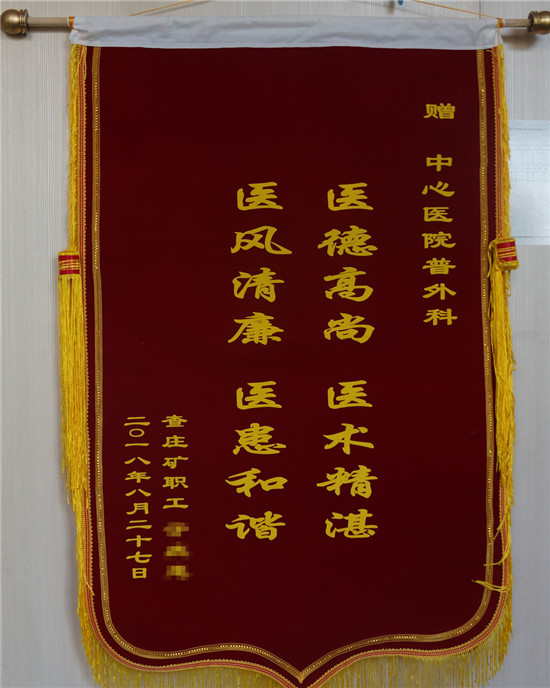 赠 中心医院普外科
医德高尚 医术精湛
医风清廉 医患和谐
查庄矿职工
二〇一八年八月二十七日